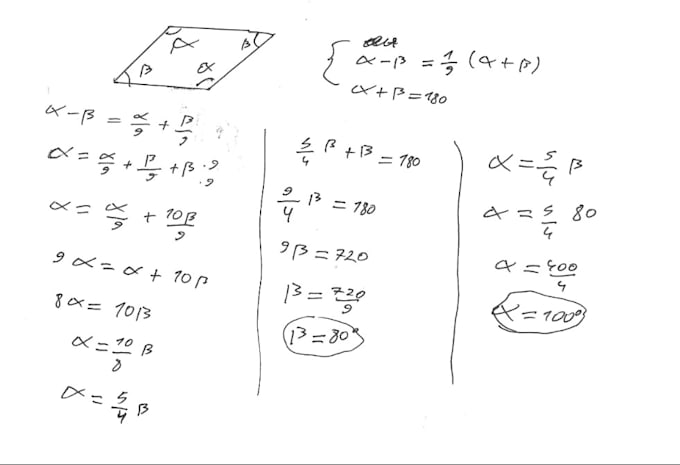 α β
β α
α - β = 1/9 (α + β)
α + β = 180
α - β = α/9 + β/9
α = α/9 + β/9 + β ·9/·9
α = α/9 + 10β/9
9α = α + 10β
8α = 10β
α = 10/8 β
α = 5/4 β
5/4 β + β = 180
9/4 β = 180
9β = 720
β = 720/9
β = 80°
α = 5/4 β
α = 5/4 80
α = 400/4
α = 100°